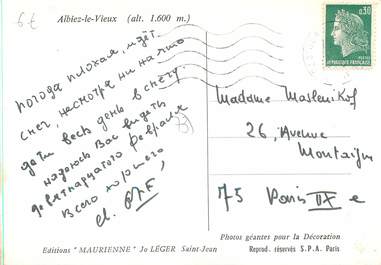 6€
Albiez-le-Vieux (alt. 1.600 m.)
0,30
REPUBLIQUE FRANÇAISE
погода плохая, идёт
снег, несмотря ни на что
дети весь день в снегу.
надеюсь Вас видеть
девятнадцатого февраля
всего хорошего
Madame Maslenikof
26, Avenue
Montaigne
75 Paris IX e
Photos géantes pour la Décoration
Editions "MAURIENNE" Jo LÉGER Saint-Jean
Reprod. réservés S.P.A. Paris